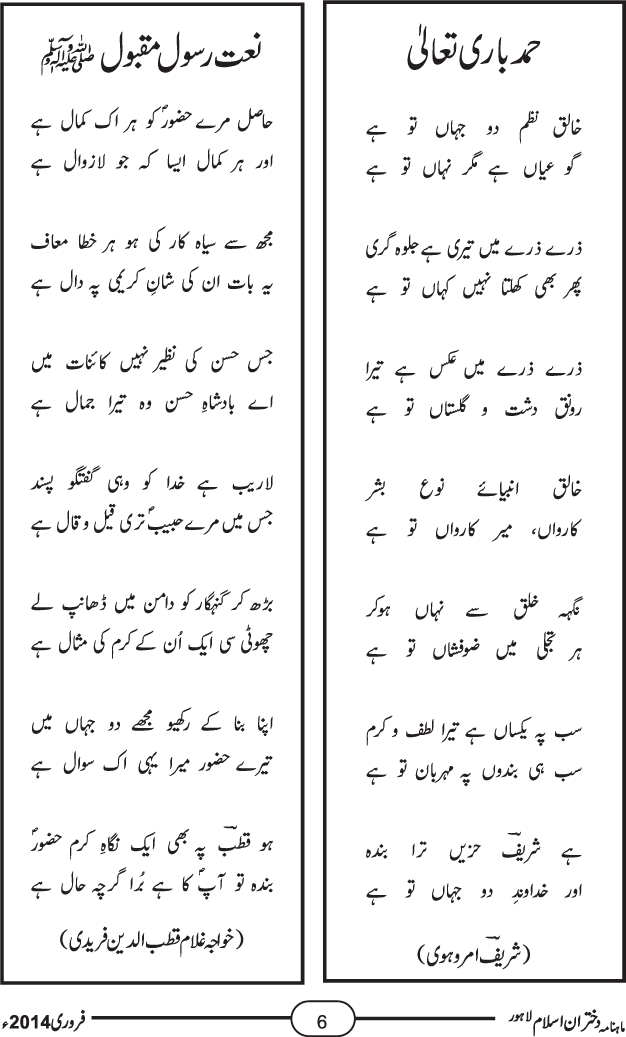 حمد باری تعالیٰ
خالق نظم دو جہاں تو ہے
گو عیاں ہے مگر نہاں تو ہے
ذرے ذرے میں تیری ہے جلوہ گری
پھر بھی کھلتا نہیں کہاں تو ہے
ذرے ذرے میں عکس ہے تیرا
رونق دشت و گلستاں تو ہے
خالق انبیائے نوع بشر
کارواں، میر کارواں تو ہے
نگہہ خلق سے نہاں ہوکر
ہر تجلی میں ضوفشاں تو ہے
سب پہ یکساں ہے تیرا لطف و کرم
سب ہی بندوں پہ مہربان تو ہے
ہے شریفؔ حزیں ترا بندہ
اور خداوندِ دو جہاں تو ہے
(شریفؔ امروہوی)
نعت رسول مقبول ﷺ
حاصل مرے حضورؐ کو ہر اک کمال ہے
اور ہر کمال ایسا کہ جو لازوال ہے
مجھ سے سیاہ کار کی ہو ہر خطا معاف
یہ بات ان کی شانِ کریمی پہ دال ہے
جس حسن کی نظیر نہیں کائنات میں
اے بادشاہِ حسن وہ تیرا جمال ہے
لاریب ہے خدا کو وہی گفتگو پسند
جس میں مرے حبیبؐ تری قیل و قال ہے
بڑھ کر گنہگار کو دامن میں ڈھانپ لے
چھوٹی سی ایک اُن کے کرم کی مثال ہے
اپنا بنا کے رکھیو مجھے دو جہاں میں
تیرے حضور میرا یہی اک سوال ہے
ہو قطبؔ پہ بھی ایک نگاہِ کرم حضورؐ
بندہ تو آپؐ کا ہے بُرا گرچہ حال ہے
(خواجہ غلام قطب الدین فریدی)
ماہنامہ دختران اسلام لاہور 6 فروری 2014ء